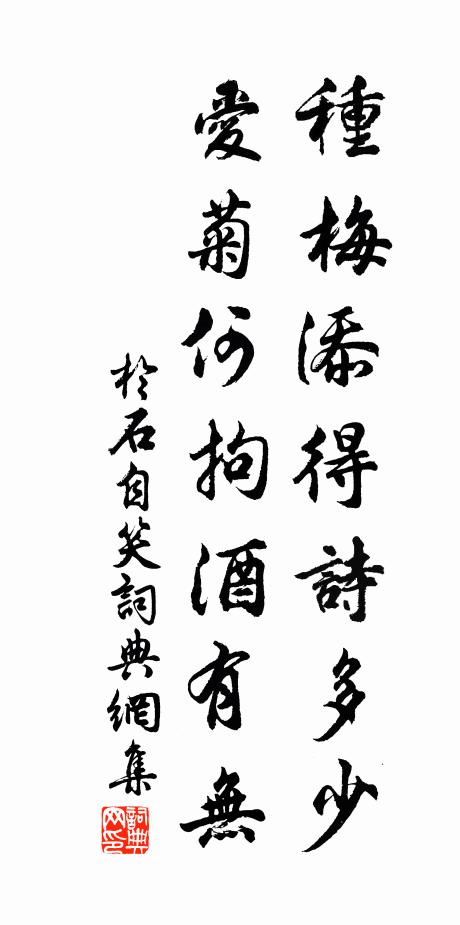 種梅添得詩多少
愛菊何拘酒有無
於石自笑詞典網集
詞典
网印